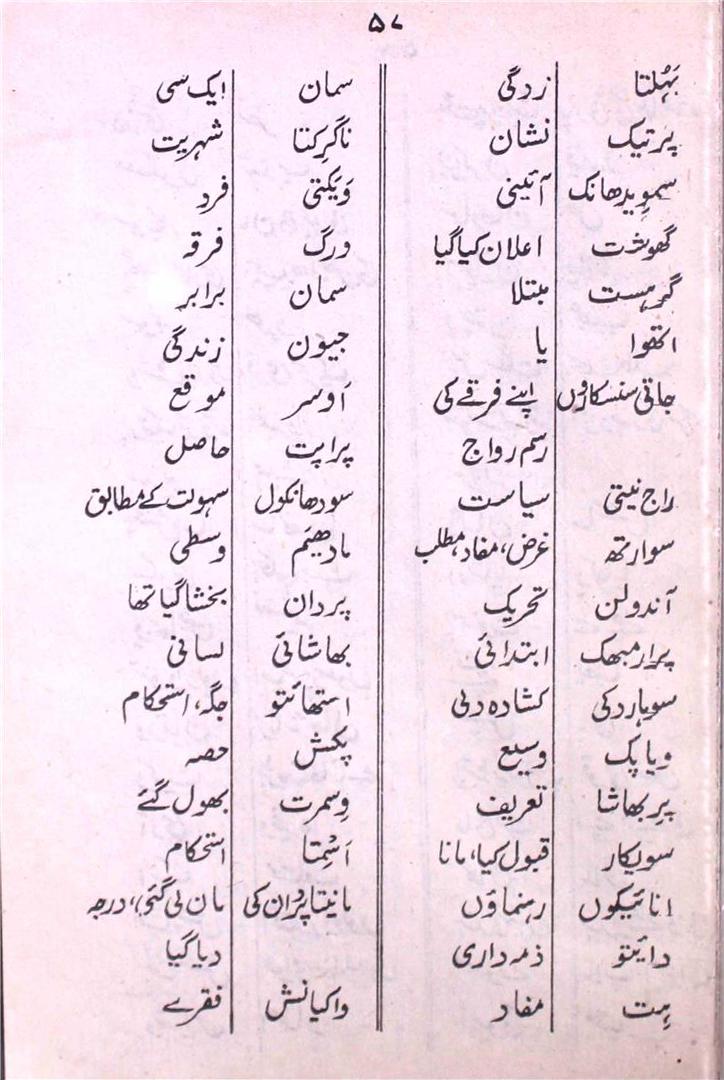 ۵۷
بَہُلتا زدگی
پرتیک نشان
سمویدھانک آئینی
گھوشت اعلان کیا گیا
گرہست مبتلا
اتھوا یا
جاتی سنسکاروں اپنے فرقے کی
رسم رواج
راج نیتی سیاست
سوارتھ غرض، مفاد، مطلب
آندولن تحریک
پرارمبھک ابتدائی
سوہاردکی کشادہ دلی
ویاپک وسیع
پربھاشا تعریف
سویکار قبول کیا، مانا
انائیکوں رہنماؤں
دائتو ذمہ داری
ہِت مفاد
سمان ایک سی
ناگرکتا شہریت
وَیکتی فرد
ورگ فرقہ
سمان برابر
جیون زندگی
اَوسر موقع
پراپت حاصل
سودھانکول سہولت کے مطابق
مادھیَم وسطی
پردان بخشا گیا تھا
بھاشائی لسانی
استھائتو جگہ، استحکام
پکش حصہ
وِسمرت بھول گئے
اَسْمِتا استحکام
مانیتا پردان کی مان لی گئی، درجہ
دیا گیا
واکیانش فقرے